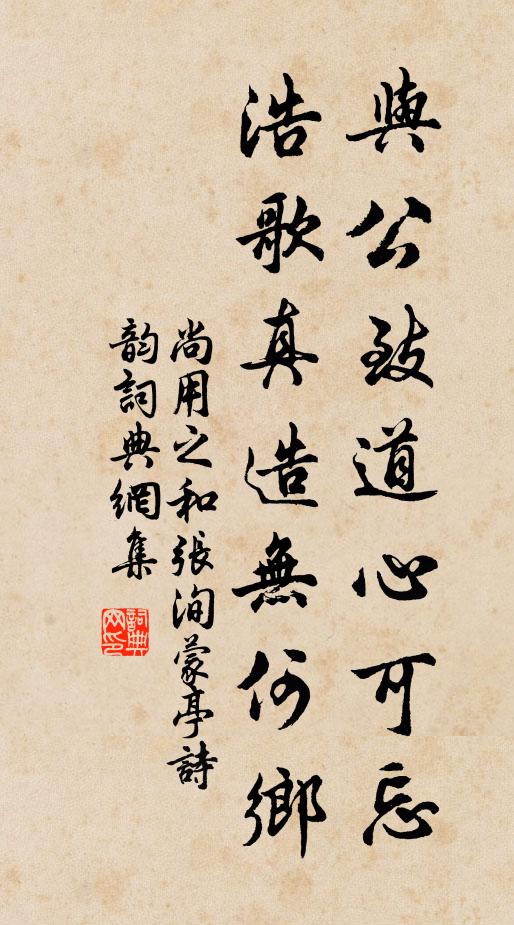 與公致道心可忘
浩歌真造無何鄉
尚用之和張洵蒙亭詩
韵詞典網集
詞典网印